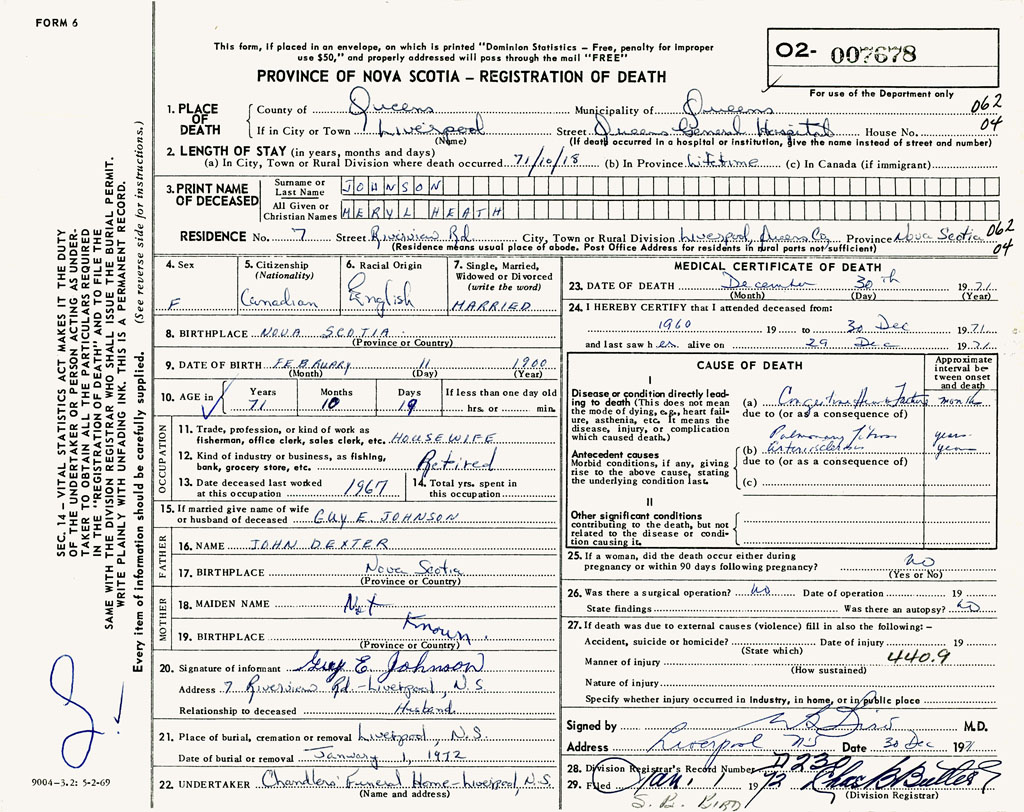 FORM 6
This form, if placed in an envelope, on which is printed "Dominion Statistics – Free, penalty for improper
use $50," and properly addressed will pass through the mail "FREE"
PROVINCE OF NOVA SCOTIA – REGISTRATION OF DEATH
02- 007678
For use of the Department only
062
04
1. PLACE OF DEATH
County of Queens Municipality of Queens
If in City or Town Liverpool Street Queens General Hospital House No.
(Name) (If death occurred in a hospital or institution, give the name instead of street and number)
2. LENGTH OF STAY (in years, months and days)
(a) In City, Town or Rural Division where death occurred 71/10/18 (b) In Province Lifetime (c) In Canada (if immigrant)
3. PRINT NAME OF DECEASED
Surname or Last Name JOHNSON
All Given or Christian Names MERYL HEATH
RESIDENCE No. 7 Street Riverview Rd. City, Town or Rural Division Liverpool, Queens Co. Province Nova Scotia 062
(Residence means usual place of abode. Post Office Address for residents in rural parts not sufficient) 04
4. Sex
F
5. Citizenship
(Nationality)
Canadian
6. Racial Origin
English
7. Single, Married,
Widowed or Divorced
(write the word)
MARRIED
8. BIRTHPLACE NOVA SCOTIA
(Province or Country)
9. DATE OF BIRTH FEBRUARY 11 1900
(Month) (Day) (Year)
10. AGE in
Years Months Days If less than one day old
71 10 19 hrs. or min.
OCCUPATION
11. Trade, profession, or kind of work as
fisherman, office clerk, sales clerk, etc. HOUSEWIFE
12. Kind of industry or business, as fishing,
bank, grocery store, etc. Retired
13. Date deceased last worked
at this occupation 1967
14. Total yrs. spent in
this occupation
15. If married give name of wife
or husband of deceased GUY E. JOHNSON
FATHER
16. NAME JOHN DEXTER
17. BIRTHPLACE Nova Scotia
(Province or Country)
MOTHER
18. MAIDEN NAME Not
19. BIRTHPLACE Known.
(Province or Country)
20. Signature of informant Guy E. Johnson
Address 7 Riverview Rd. - Liverpool, N.S.
Relationship to deceased Husband
21. Place of burial, cremation or removal Liverpool, N.S.
Date of burial or removal January 1, 1972
22. UNDERTAKER Chandlers' Funeral Home - Liverpool, N.S.
(Name and address)
MEDICAL CERTIFICATE OF DEATH
23. DATE OF DEATH December 30th 1971
(Month) (Day) (Year)
24. I HEREBY CERTIFY that I attended deceased from:
1960 19 to 30 Dec 1971
and last saw her alive on 29 Dec 1971
CAUSE OF DEATH
Approximate
interval between onset
and death
I
Disease or condition directly leading to death (This does not mean
the mode of dying, e.g., heart failure, asthenia, etc. It means the
disease, injury, or complication
which caused death.)
(a) Congestive Heart Failure month
due to (or as a consequence of)
Antecedent causes
Morbid conditions, if any, giving
rise to the above cause, stating
the underlying condition last.
Pulmonary Fibrosis years
(b) arteriosclerosis years
due to (or as a consequence of)
(c)
II
Other significant conditions
contributing to the death, but not
related to the disease or condition causing it.
25. If a woman, did the death occur either during
pregnancy or within 90 days following pregnancy? NO
(Yes or No)
26. Was there a surgical operation? NO Date of operation 19
State findings Was there an autopsy? NO
27. If death was due to external causes (violence) fill in also the following: –
Accident, suicide or homicide? Date of injury 19
(State which)
Manner of injury 440.9
(How sustained)
Nature of injury
Specify whether injury occurred in Industry, in home, or in public place
Signed by M.D.
Address Liverpool NS Date 30 Dec 1971
28. Division Registrar's Record Number D 230
29. Filed Jan. 1972
(Division Registrar)
S. B. BIRD
SEC. 14 – VITAL STATISTICS ACT MAKES IT THE DUTY
OF THE UNDERTAKER OR PERSON ACTING AS UNDERTAKER TO OBTAIN ALL THE PARTICULARS REQUIRED
IN THE "REGISTRATION OF DEATH" AND TO FILE THE
SAME WITH THE DIVISION REGISTRAR WHO SHALL ISSUE THE BURIAL PERMIT.
WRITE PLAINLY WITH UNFADING INK. THIS IS A PERMANENT RECORD.
Every item of information should be carefully supplied. (See reverse side for instructions.)
9004-3.2: 5-2-69